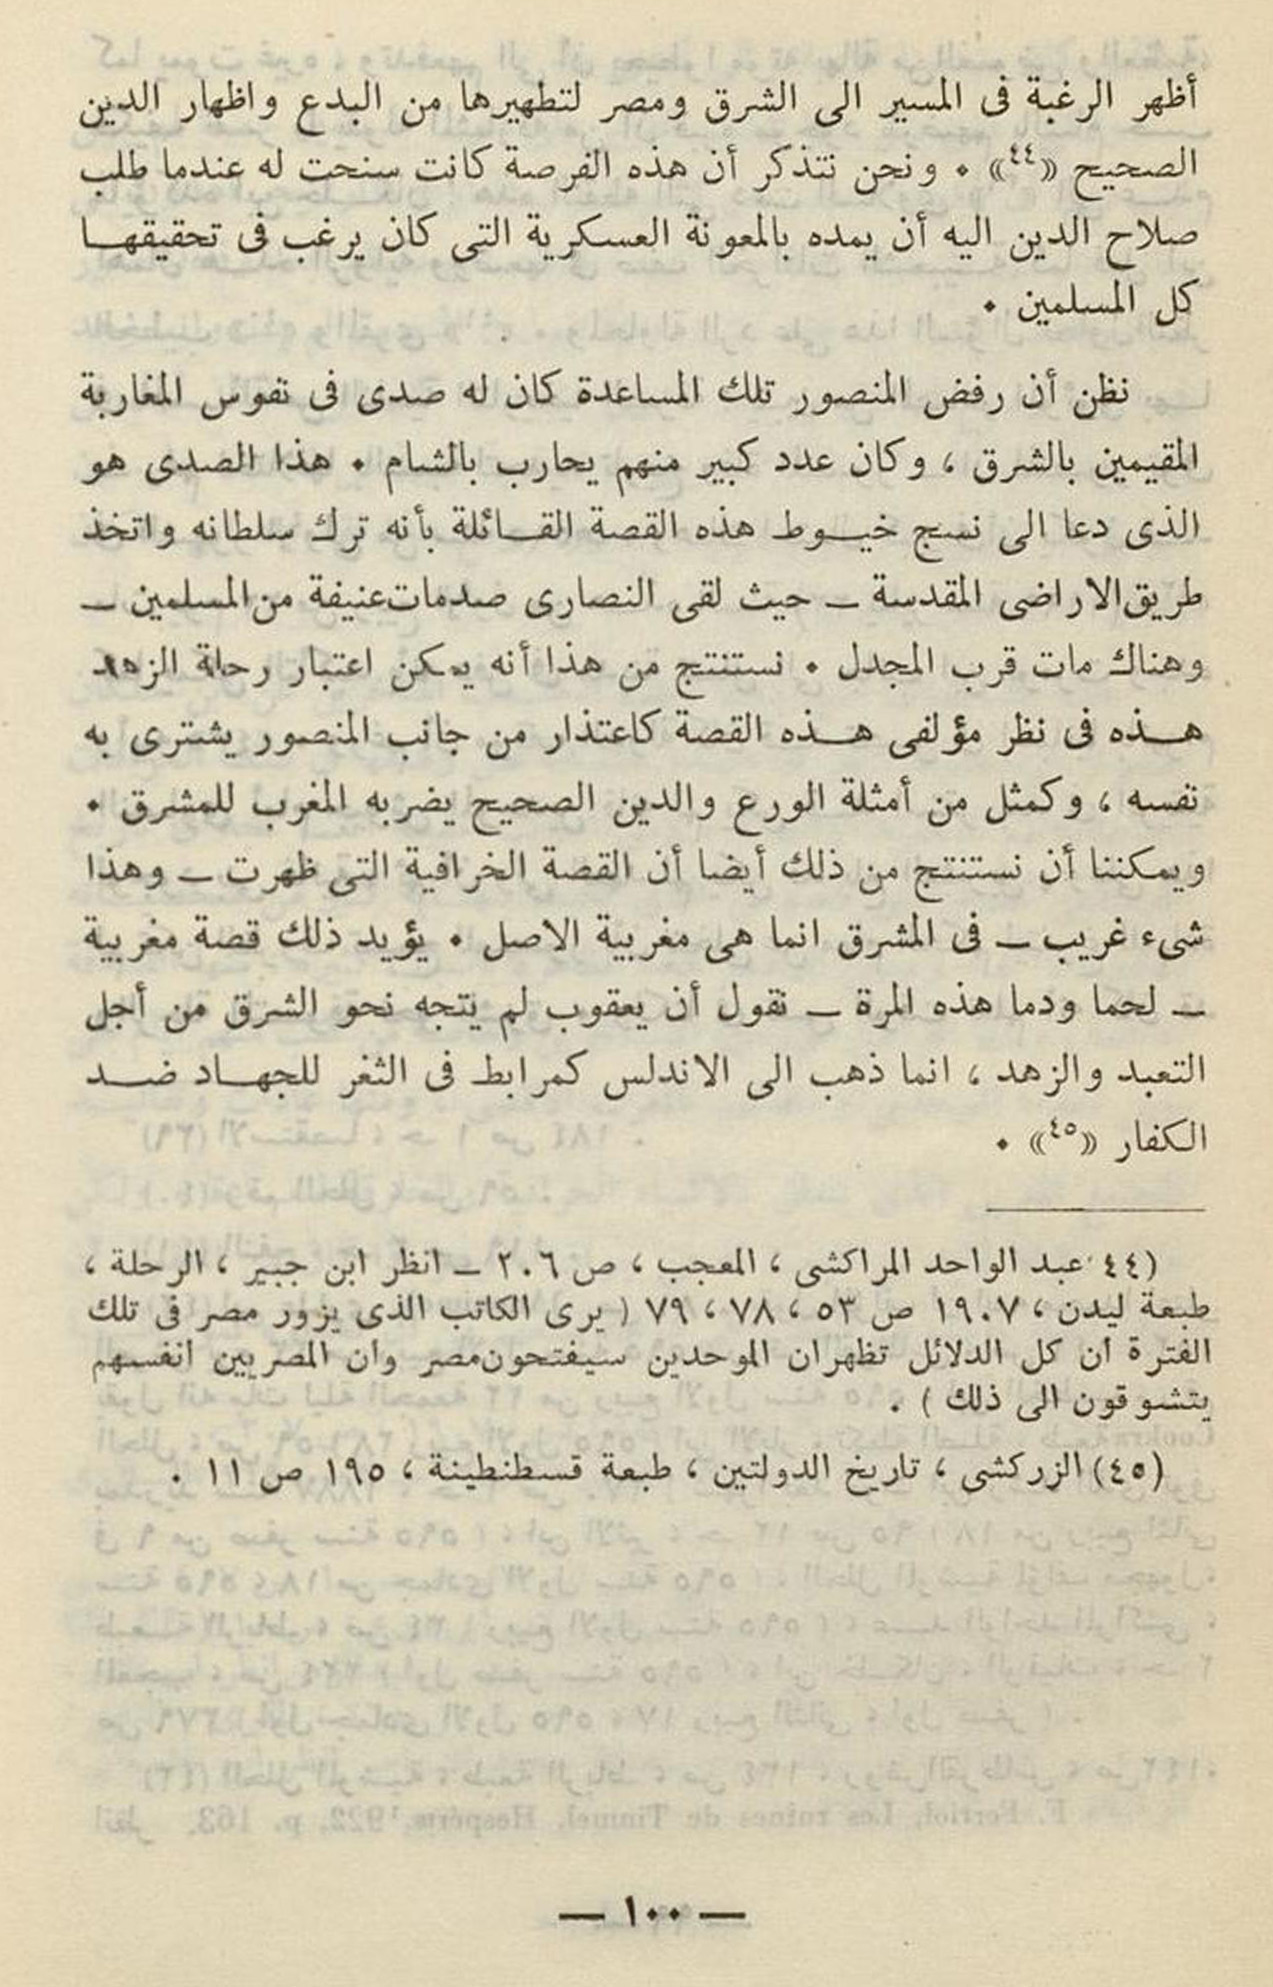 أظهر الرغبة فى المسير الى الشرق ومصر لتطهيرها من البدع واظهار الدين
الصحيح «٤٤» ٠ ونحن نتذكر أن هذه الفرصة كانت سنحت له عندما طلب
صلاح الدين اليه أن يمده بالمعونة العسكرية التى كان يرغب فى تحقيقهـا
كل المسلمين ٠
نظن أن رفض المنصور تلك المساعدة كان له صدى فى نفوس المغاربة
المقيمين بالشرق ، وكان عدد كبير منهم يحارب بالشام ٠ هذا الصدى هو
الذى دعا الى نسج خيـوط هذه القصة القـائلة بأنه ترك سلطانه واتخذ
طريق الاراضى المقدسة ـ حيث لقى النصارى صدمات عنيفة من المسلمين ـ
وهناك مات قرب المجدل ٠ نستنتج من هذا أنه يمكن اعتبار رحلة الزهد
هـذه فى نظر مؤلفى هـذه القصة كاعتذار من جانب المنصور يشترى به
نفسه ، وكمثل من أمثلة الورع والدين الصحيح يضربه المغرب للمشرق ٠
ويمكننا أن نستنتج من ذلك أيضا أن القصة الخرافية التى ظهرت ـ وهذا
شىء غريب ـ فى المشرق انما هى مغربية الاصل ٠ يؤيد ذلك قصة مغربية
ـ لحما ودما هذه المرة ـ تقول أن يعقوب لم يتجه نحو الشرق من أجل
التعبد والزهد ، انما ذهب الى الاندلس كمرابط فى الثغر للجهـاد ضـد
الكفار «٤٥» ٠
(٤٤ عبد الواحد المراكشى ، المعجب ، ص ٢٠٦ ـ انظر ابن جبير ، الرحلة ،
طبعة ليدن ، ١٩٠٧ ص ٥٣ ، ٧٨ ، ٧٩ ( يرى الكاتب الذى يزور مصر فى تلك
الفترة أن كل الدلائل تظهر ان الموحدين سيفتحون مصر وان المصريين انفسهم
يتشوقون الى ذلك ) .
(٤٥) الزركشى ، تاريخ الدولتين ، طبعة قسطنطينة ، ١٩٥ ص ١١ .
— ١٠٠ —